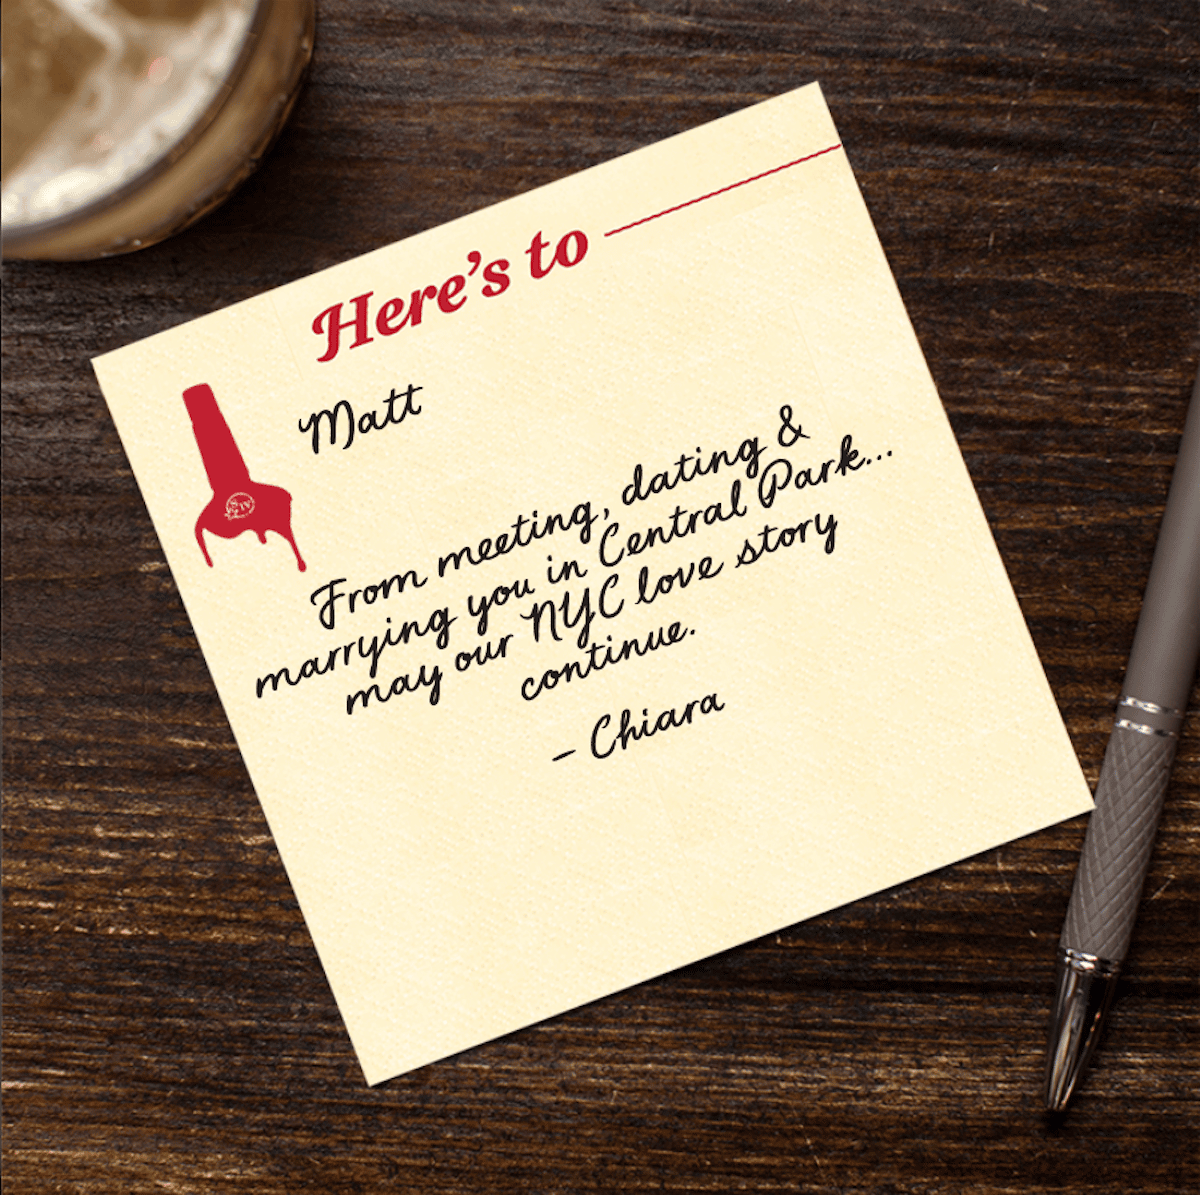 Here's to
Matt
From meeting, dating &
marrying you in Central Park...
may our NYC love story
continue.
- Chiara
S IV